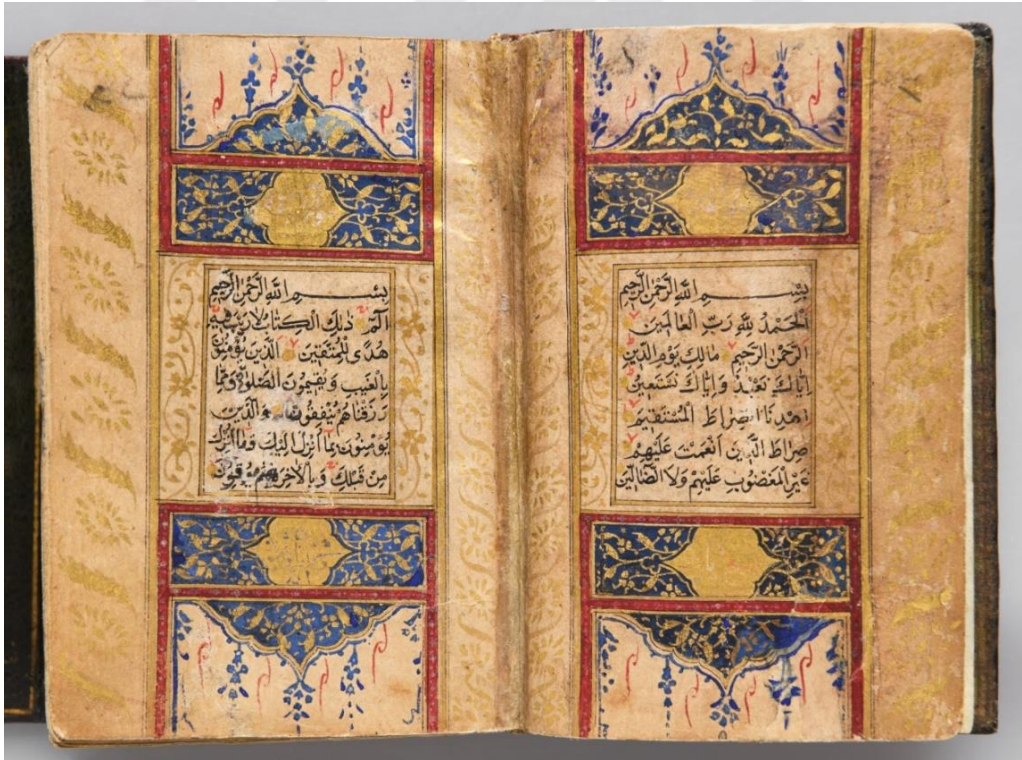 بِسْمِ اللَّهِ الرَّحْمٰنِ الرَّحِيمِ
الْحَمْدُ لِلَّهِ رَبِّ الْعَالَمِينَ
الرَّحْمٰنِ الرَّحِيمِ مَالِكِ يَوْمِ الدِّينِ
إِيَّاكَ نَعْبُدُ وَإِيَّاكَ نَسْتَعِينُ
اهْدِنَا الصِّرَاطَ الْمُسْتَقِيمَ
صِرَاطَ الَّذِينَ أَنْعَمْتَ عَلَيْهِمْ
غَيْرِ الْمَغْضُوبِ عَلَيْهِمْ وَلَا الضَّالِّينَ
بِسْمِ اللَّهِ الرَّحْمٰنِ الرَّحِيمِ
الٓمٓ ذٰلِكَ الْكِتَابُ لَا رَيْبَ فِيهِ
هُدًى لِلْمُتَّقِينَ الَّذِينَ يُؤْمِنُونَ
بِالْغَيْبِ وَيُقِيمُونَ الصَّلٰوةَ وَمِمَّا
رَزَقْنَاهُمْ يُنْفِقُونَ وَالَّذِينَ
يُؤْمِنُونَ بِمَا أُنْزِلَ إِلَيْكَ وَمَا أُنْزِلَ
مِنْ قَبْلِكَ وَبِالْآخِرَةِ هُمْ يُوقِنُونَ